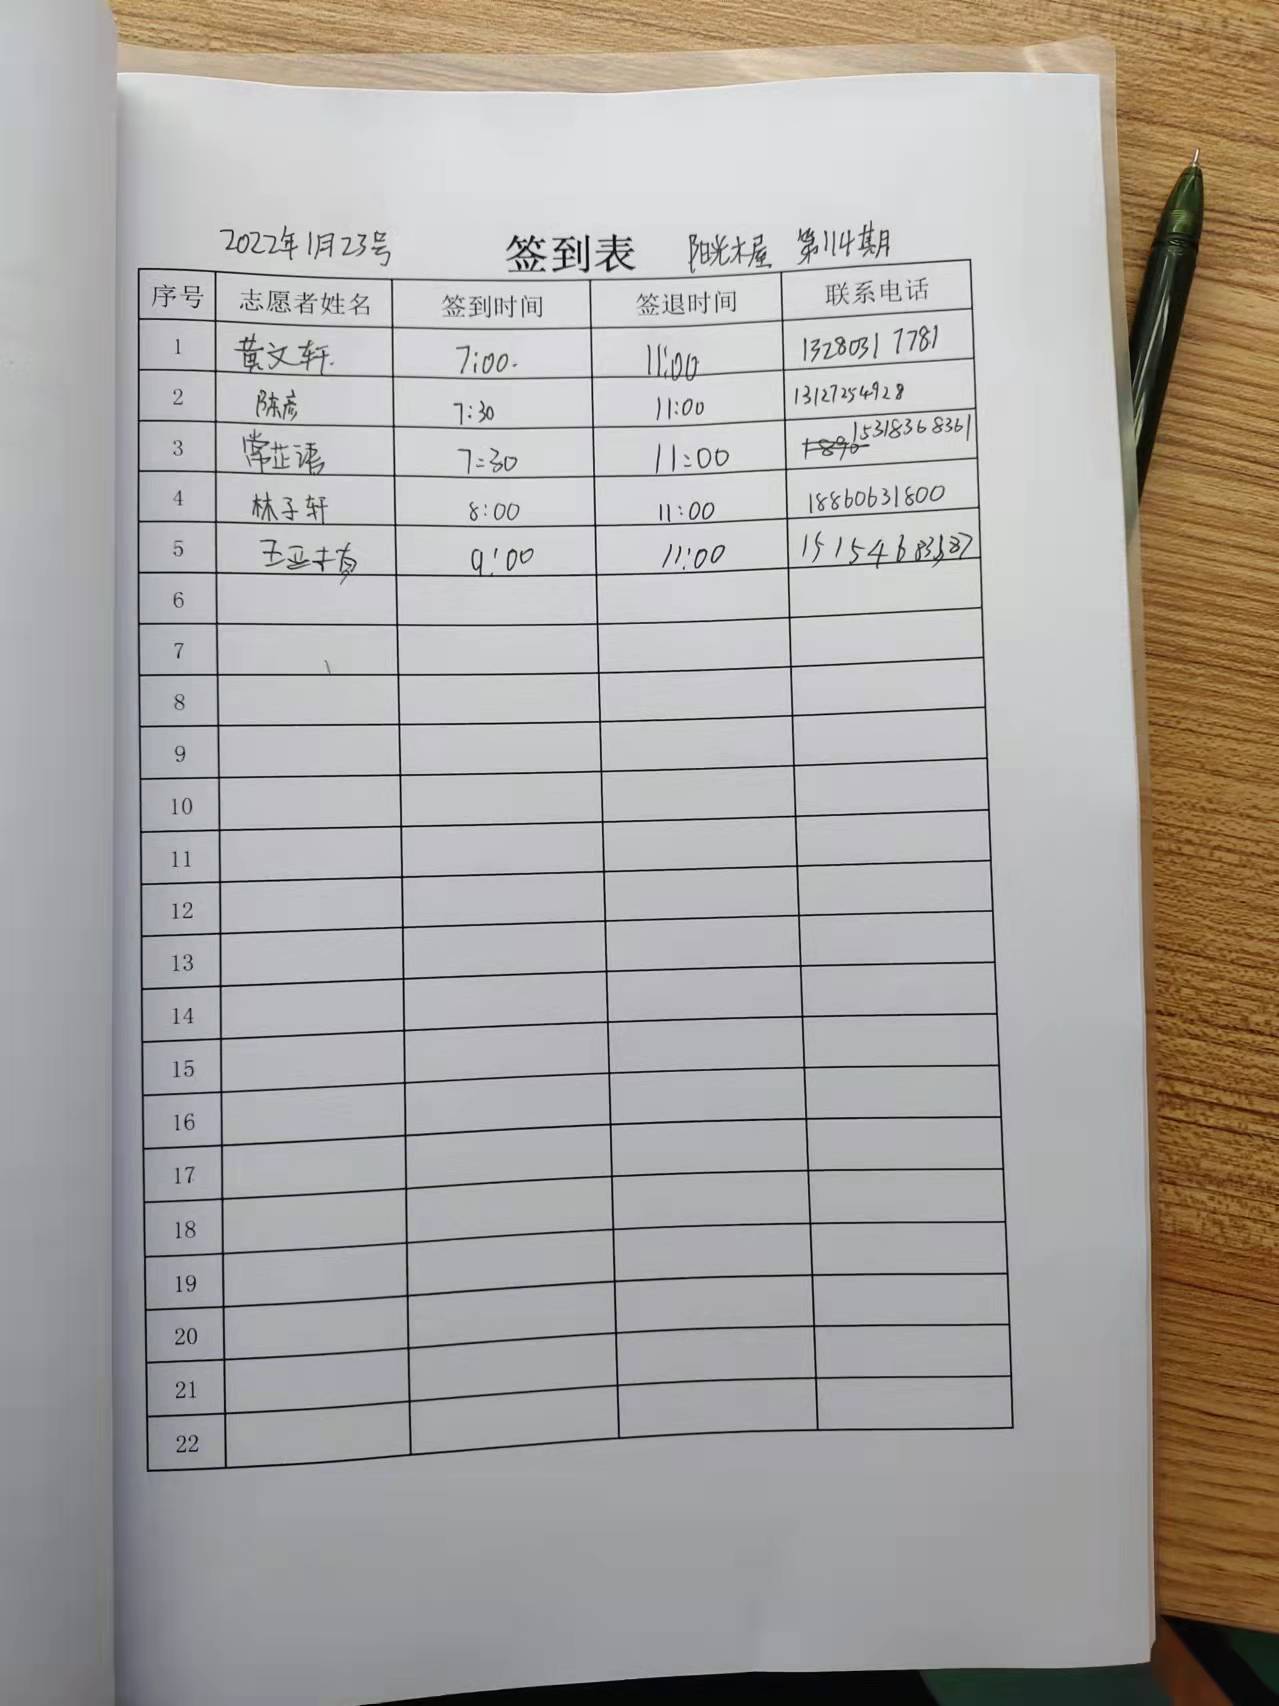 2022年1月23号 签到表 阳光木屋 第114期
序号 志愿者姓名 签到时间 签退时间 联系电话
1 黄文轩 7:00 11:00 13280317781
2 陈彦 7:30 11:00 13127254928
3 常芷语 7:30 11:00 15318368361
4 林子轩 8:00 11:00 18860631800
5 11:00 9:00
6
7
8
9
10
11
12
13
14
15
16
17
18
19
20
21
22